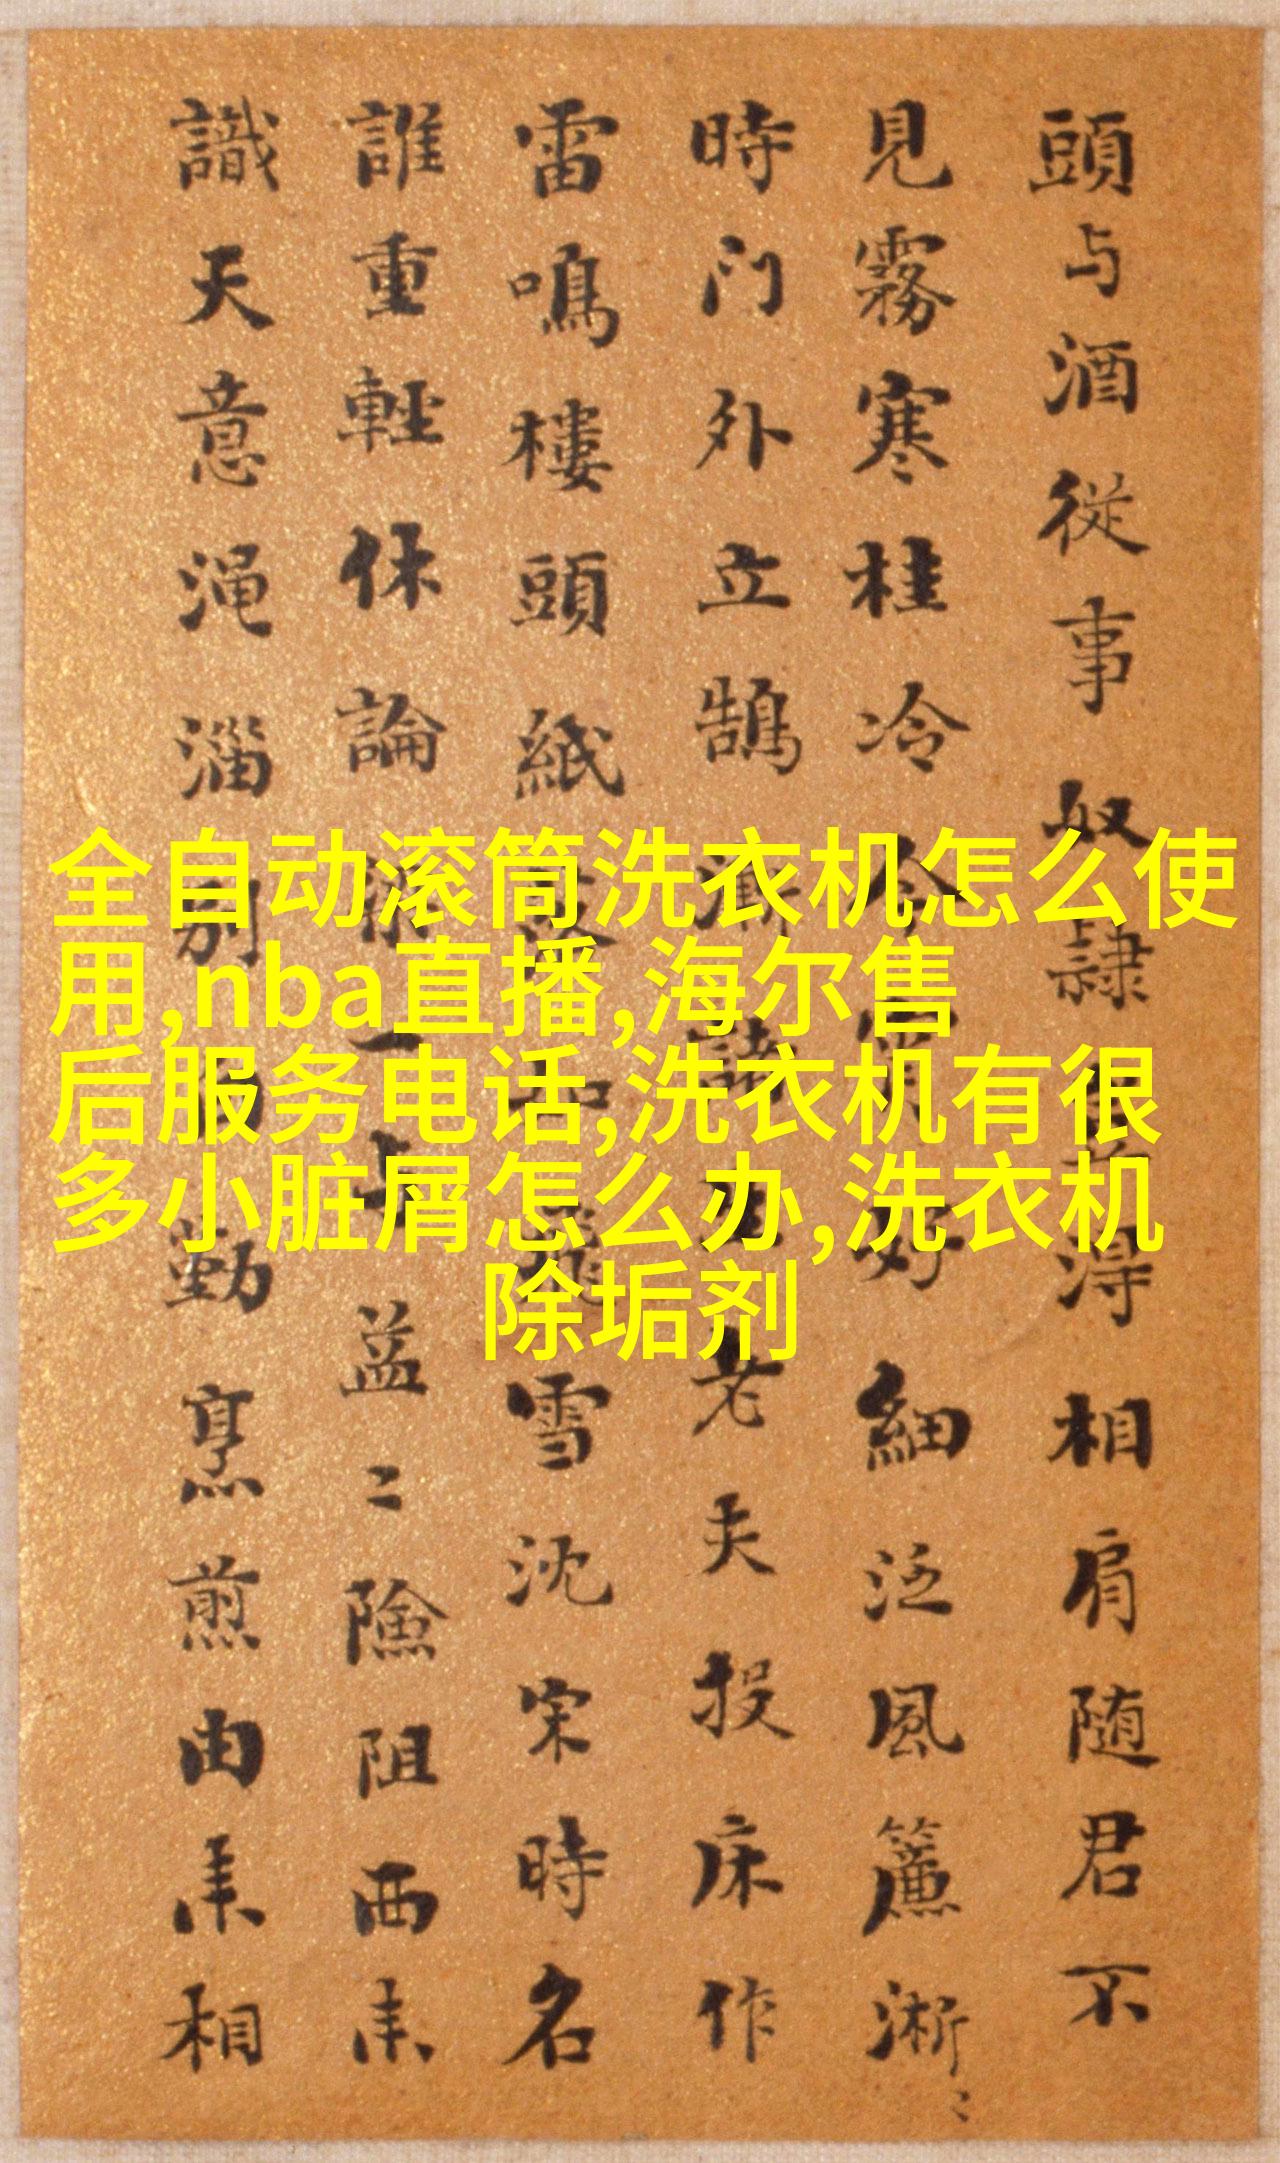 頭与酒從事奴隸得相肩随君不
見霧寒桂冷好細泛風簾淅〻
時门外立鵠漸諸老夫投床作
雷鳴樓頭紙如飛雪沈宋時名
誰重輕休論一益〻險阻西来
識天意渑淄别勤烹煎由来相
全自动滚筒洗衣机怎么使
用,nba直播,海尔售
后服务电话,洗衣机有很
多小脏屑怎么办,洗衣机
除垢剂